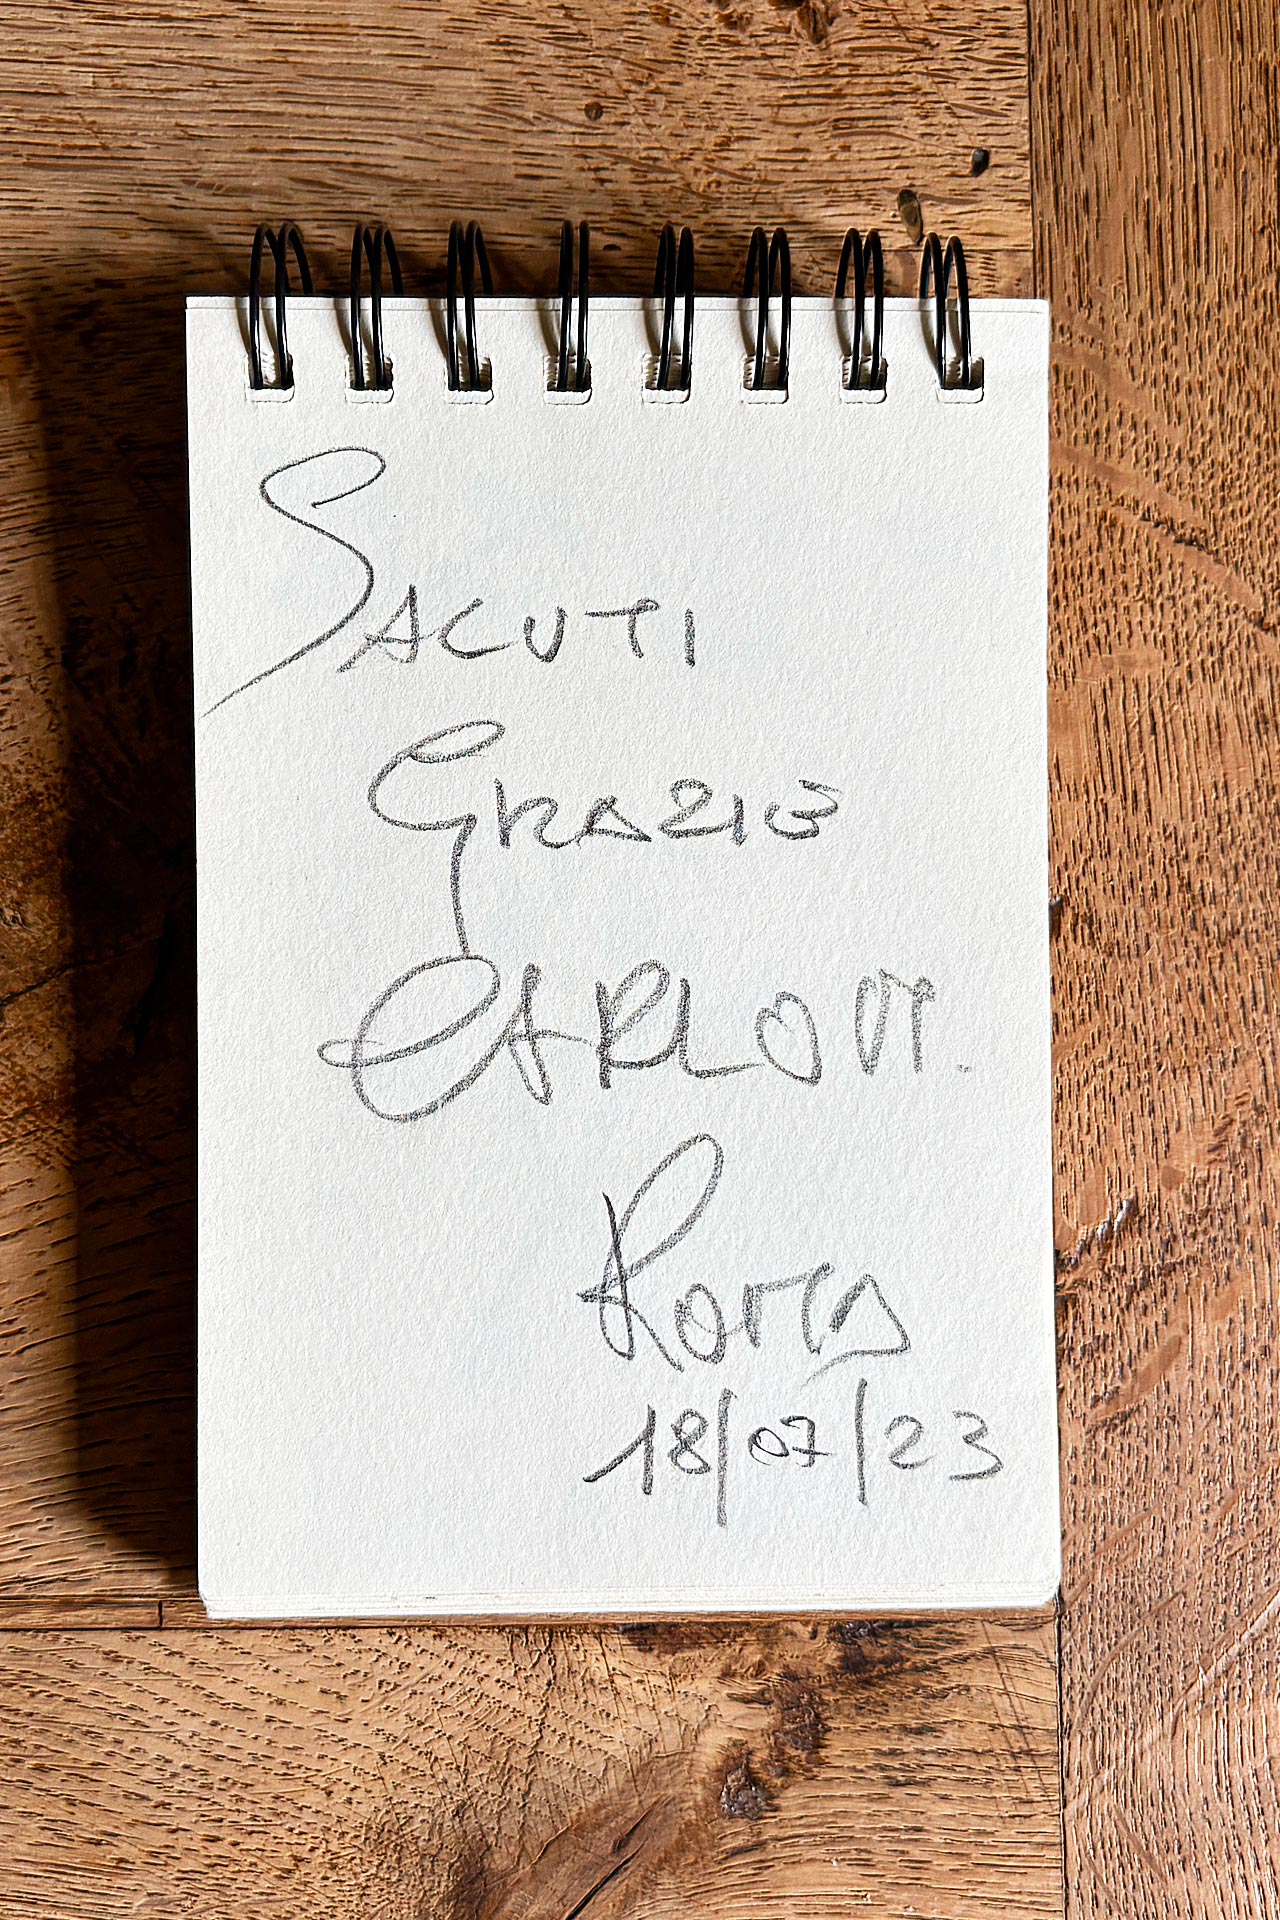 SALUTI
GRAZIE
CARLO M.
ROMA
18/07/23